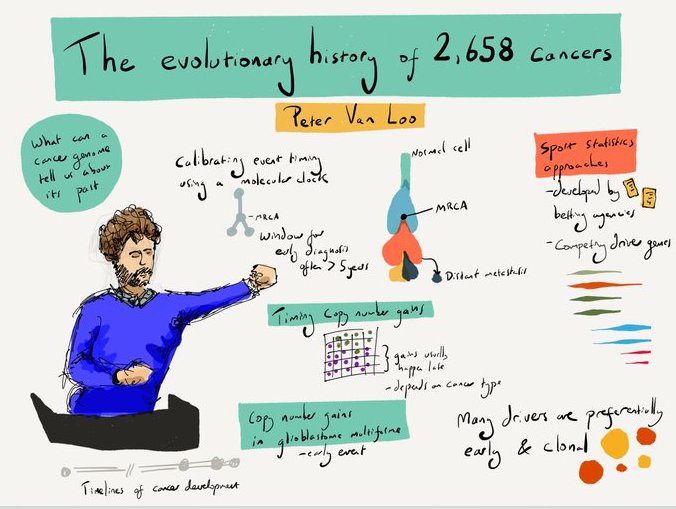 The evolutionary history of 2,658 cancers
Peter Van Loo
What can a
cancer genome
tell us about
its past
Calibrating event timing
using a molecular clock
MRCA
Window for
early diagnosis
often > 5 years
Normal cell
MRCA
Distant metastasis
Sport statistics
approaches
- developed by
betting agencies
- Competing driver genes
Timing Copy number gains
gains usually
happen late
- depends on cancer type
Copy number gains
in glioblastoma multiforme
- early event
Many drivers are preferentially
early & clonal
Timelines of cancer development